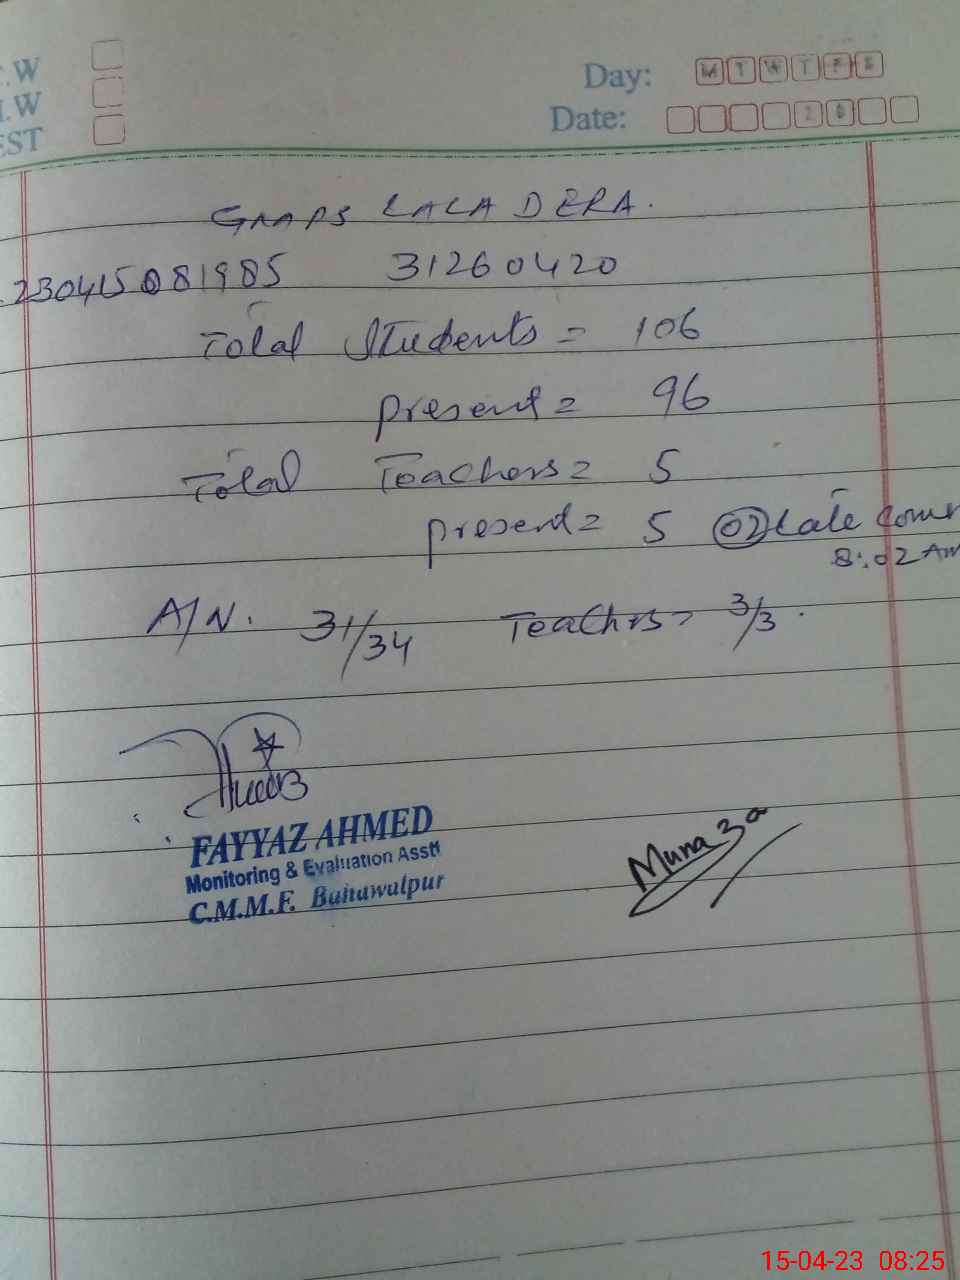 .W
Day: M T W T F S
.W
Date: 2 0
EST
GMMPS LALA DERA.
230415081985 31260420
Total Students = 106
present = 96
Total Teachers = 5
present = 5 02 Late comer
8:02 AM
A/N. 31/34 Teachrs = 3/3.
FAYYAZ AHMED
Monitoring & Evaluation Asstt
C.M.M.F. Bahawalpur
Munaza
15-04-23 08:25